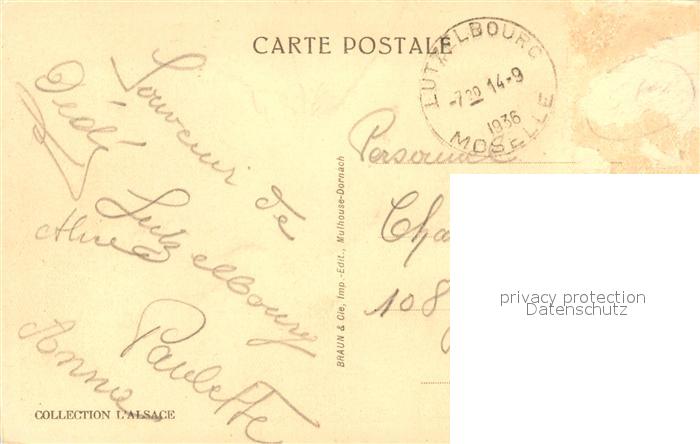 CARTE POSTALE
LUTZELBOURG
-7 30 14-9
1936
MOSELLE
Souvenir de
Lutzelbourg
Dédé
Paulette
Anna
BRAUN & Cie, Imp.-Edit., Mulhouse-Dornach
COLLECTION L'ALSACE
Personnel
Cha
108
privacy protection
Datenschutz